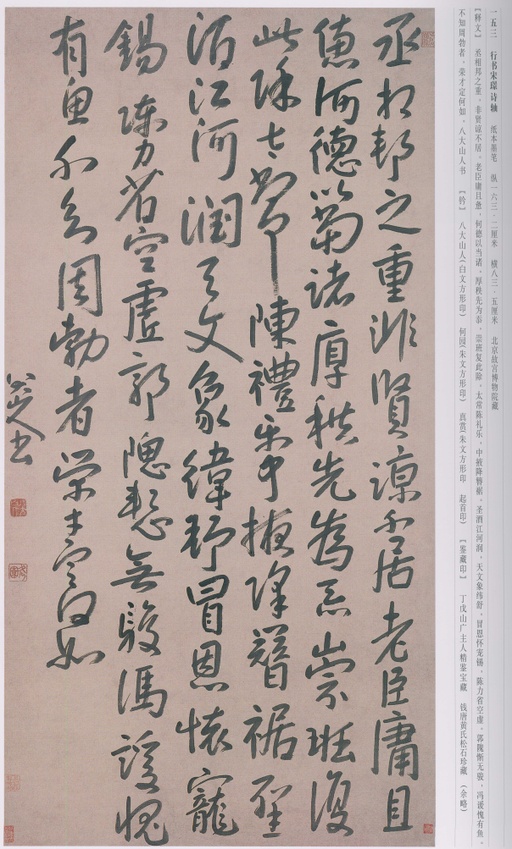 一五三 行书宋璟诗轴 纸本墨笔 纵一六三·二厘米 横八三·五厘米 北京故宫博物院藏
【释文】丞相邦之重，非贤谅不居。老臣庸且惫，何德以当诸。厚秩先为忝，崇班复此除。太常陈礼乐，中掖降簪裾。圣酒江河润，天文象纬舒。冒恩怀宠锡，陈力省空虚。郭隗惭无骏，冯谖愧有鱼。
不知周勃者，荣才定何如。八大山人书 【钤】 八大山人(白文方形印) 何园(朱文方形印) (朱文方形印 起首印) 【鉴藏印】 丁戊山广主人精鉴宝藏 钱唐黄氏松石珍藏 (余略)
丞相邦之重非賢諒不居老臣庸且
憊何德以當諸厚秩先為忝崇班復
此除太常陳禮樂中掖降簪裾聖
酒江河潤天文象緯舒冒恩懷寵
錫陳力省空虛郭隗慙無駿馮諼愧
有魚不知周勃者榮才定何如
八大山人書